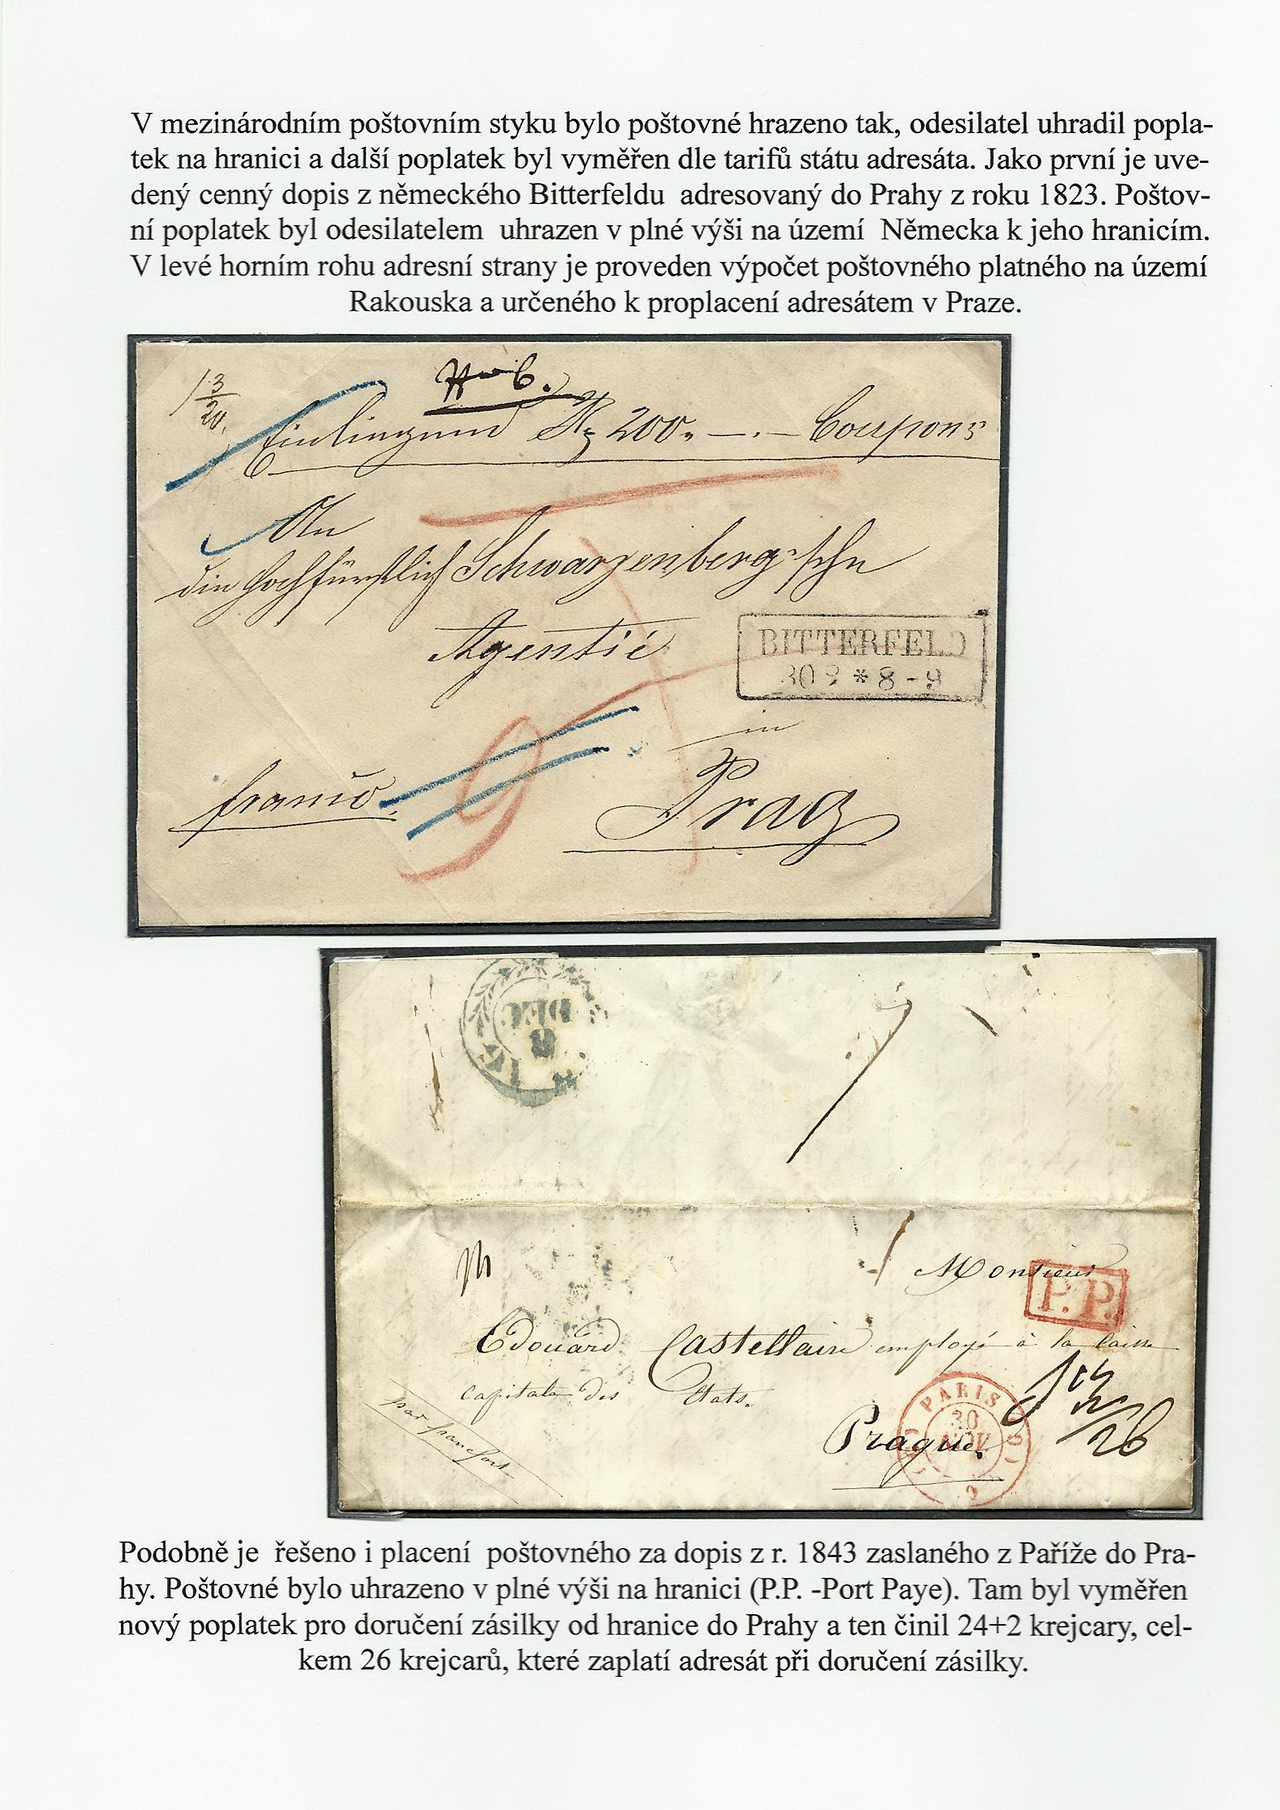 V mezinárodním poštovním styku bylo poštovné hrazeno tak, odesilatel uhradil popla-
tek na hranici a další poplatek byl vyměřen dle tarifů státu adresáta. Jako první je uve-
dený cenný dopis z německého Bitterfeldu adresovaný do Prahy z roku 1823. Poštov-
ní poplatek byl odesilatelem uhrazen v plné výši na území Německa k jeho hranicím.
V levé horním rohu adresní strany je proveden výpočet poštovného platného na území
Rakouska a určeného k proplacení adresátem v Praze.
3
20.
200. Coupons
An
die hochfürstlich Schwarzenberg'sche
Agentie
BITTERFELD
30 * 8 - 9
in
franco
Prag
DEC
8
Monsieur
P.P.
Edouard Castellain employé à la caisse
capitale des Etats.
par francfort
PARIS
30
NOV
Prague.
26
Podobně je řešeno i placení poštovného za dopis z r. 1843 zaslaného z Paříže do Pra-
hy. Poštovné bylo uhrazeno v plné výši na hranici (P.P. -Port Paye). Tam byl vyměřen
nový poplatek pro doručení zásilky od hranice do Prahy a ten činil 24+2 krejcary, cel-
kem 26 krejcarů, které zaplatí adresát při doručení zásilky.